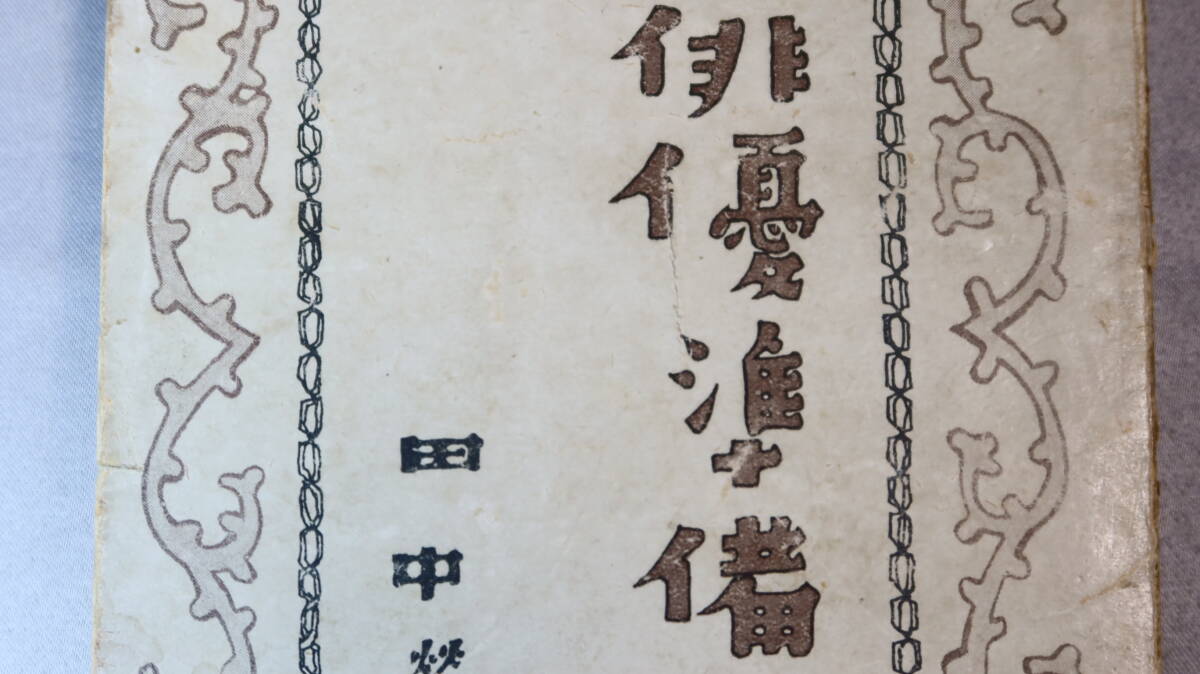 俳優準備
田中